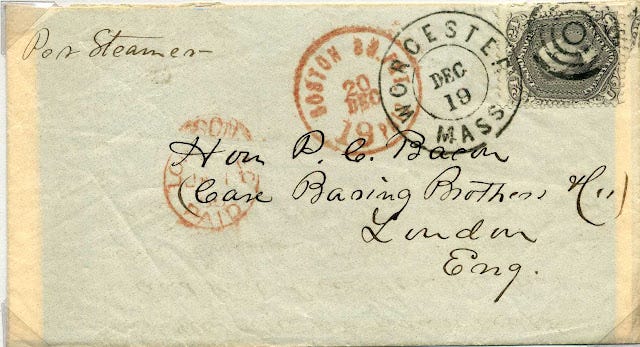 Per Steamer
BOSTON BR. PKT
20
DEC
19
WORCESTER
DEC
19
MASS
LONDON
PAID
Hon P. C. Bacon
Care Baring Brothers & Co
London
Eng.